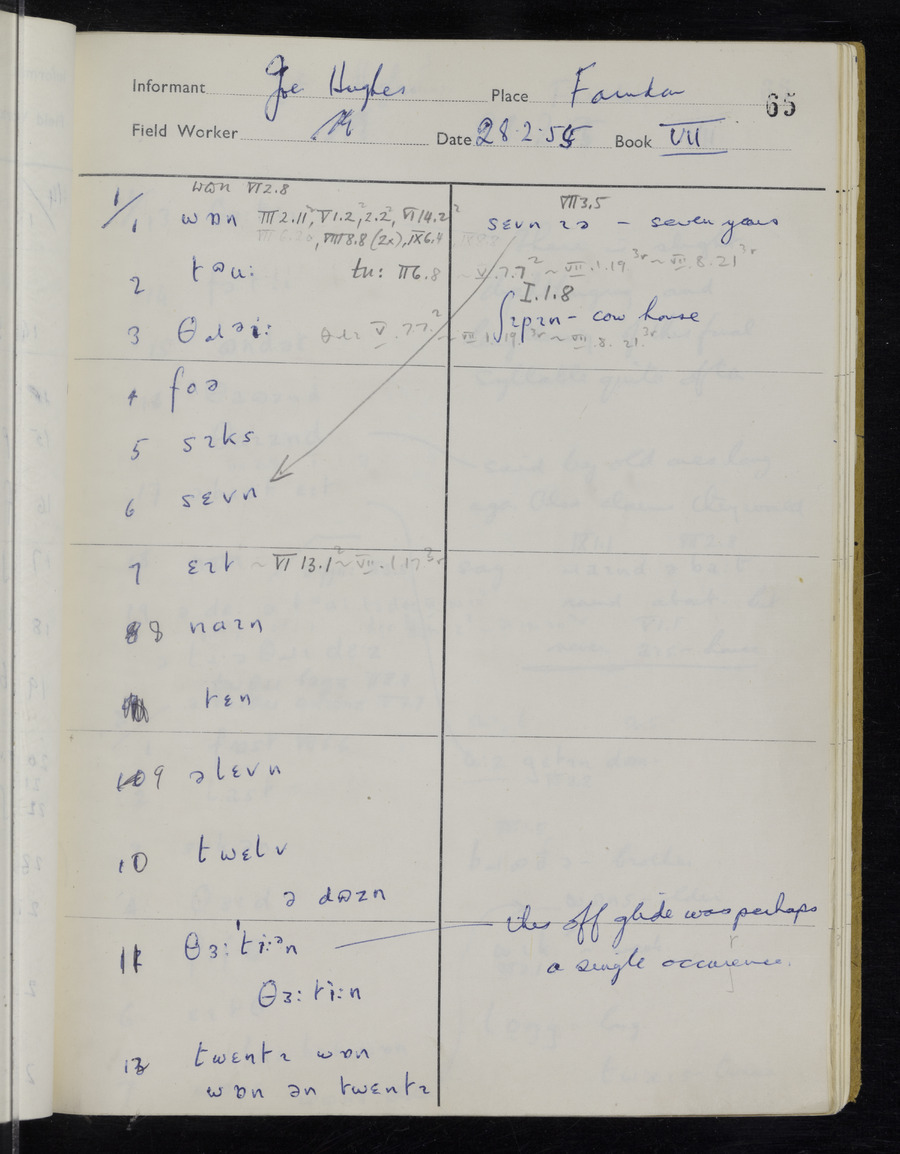 Informant Joe Hughes Place Farndon 65
Field Worker Date 28·2·55 Book VII
wɒn VI 2.8
1/1 wɒn III 2.11, VI.2, 2.2, VI 14.2²
VIII 8.8 (2x), IX 6.4
VIII 3.5
sɛvn ɪə – seven years
2 təu: tu: II 6.8 ~ V.7.7² ~ VII.1.19³ʳ ~ VII.8.21³ʳ
I.1.8
ʃɪpɪn – cow house
3 θɹəi: θɹɪ V.7.7² ~ VII 1.19³ʳ ~ VII.8.21³ʳ
4 foə
5 sɪks
6 sɛvn
7 ɛɪt ~ VI 13.1² ~ VII.1.17³ʳ
8 naɪn
tɛn
9 əlɛvn
10 twɛlv
ə dɒzn
11 θɜ:ˈti:ᵊn
this off glide was perhaps
a single occurence.
θɜ:ti:n
12 twɛntɪ wɒn
wɒn ən twɛntɪ